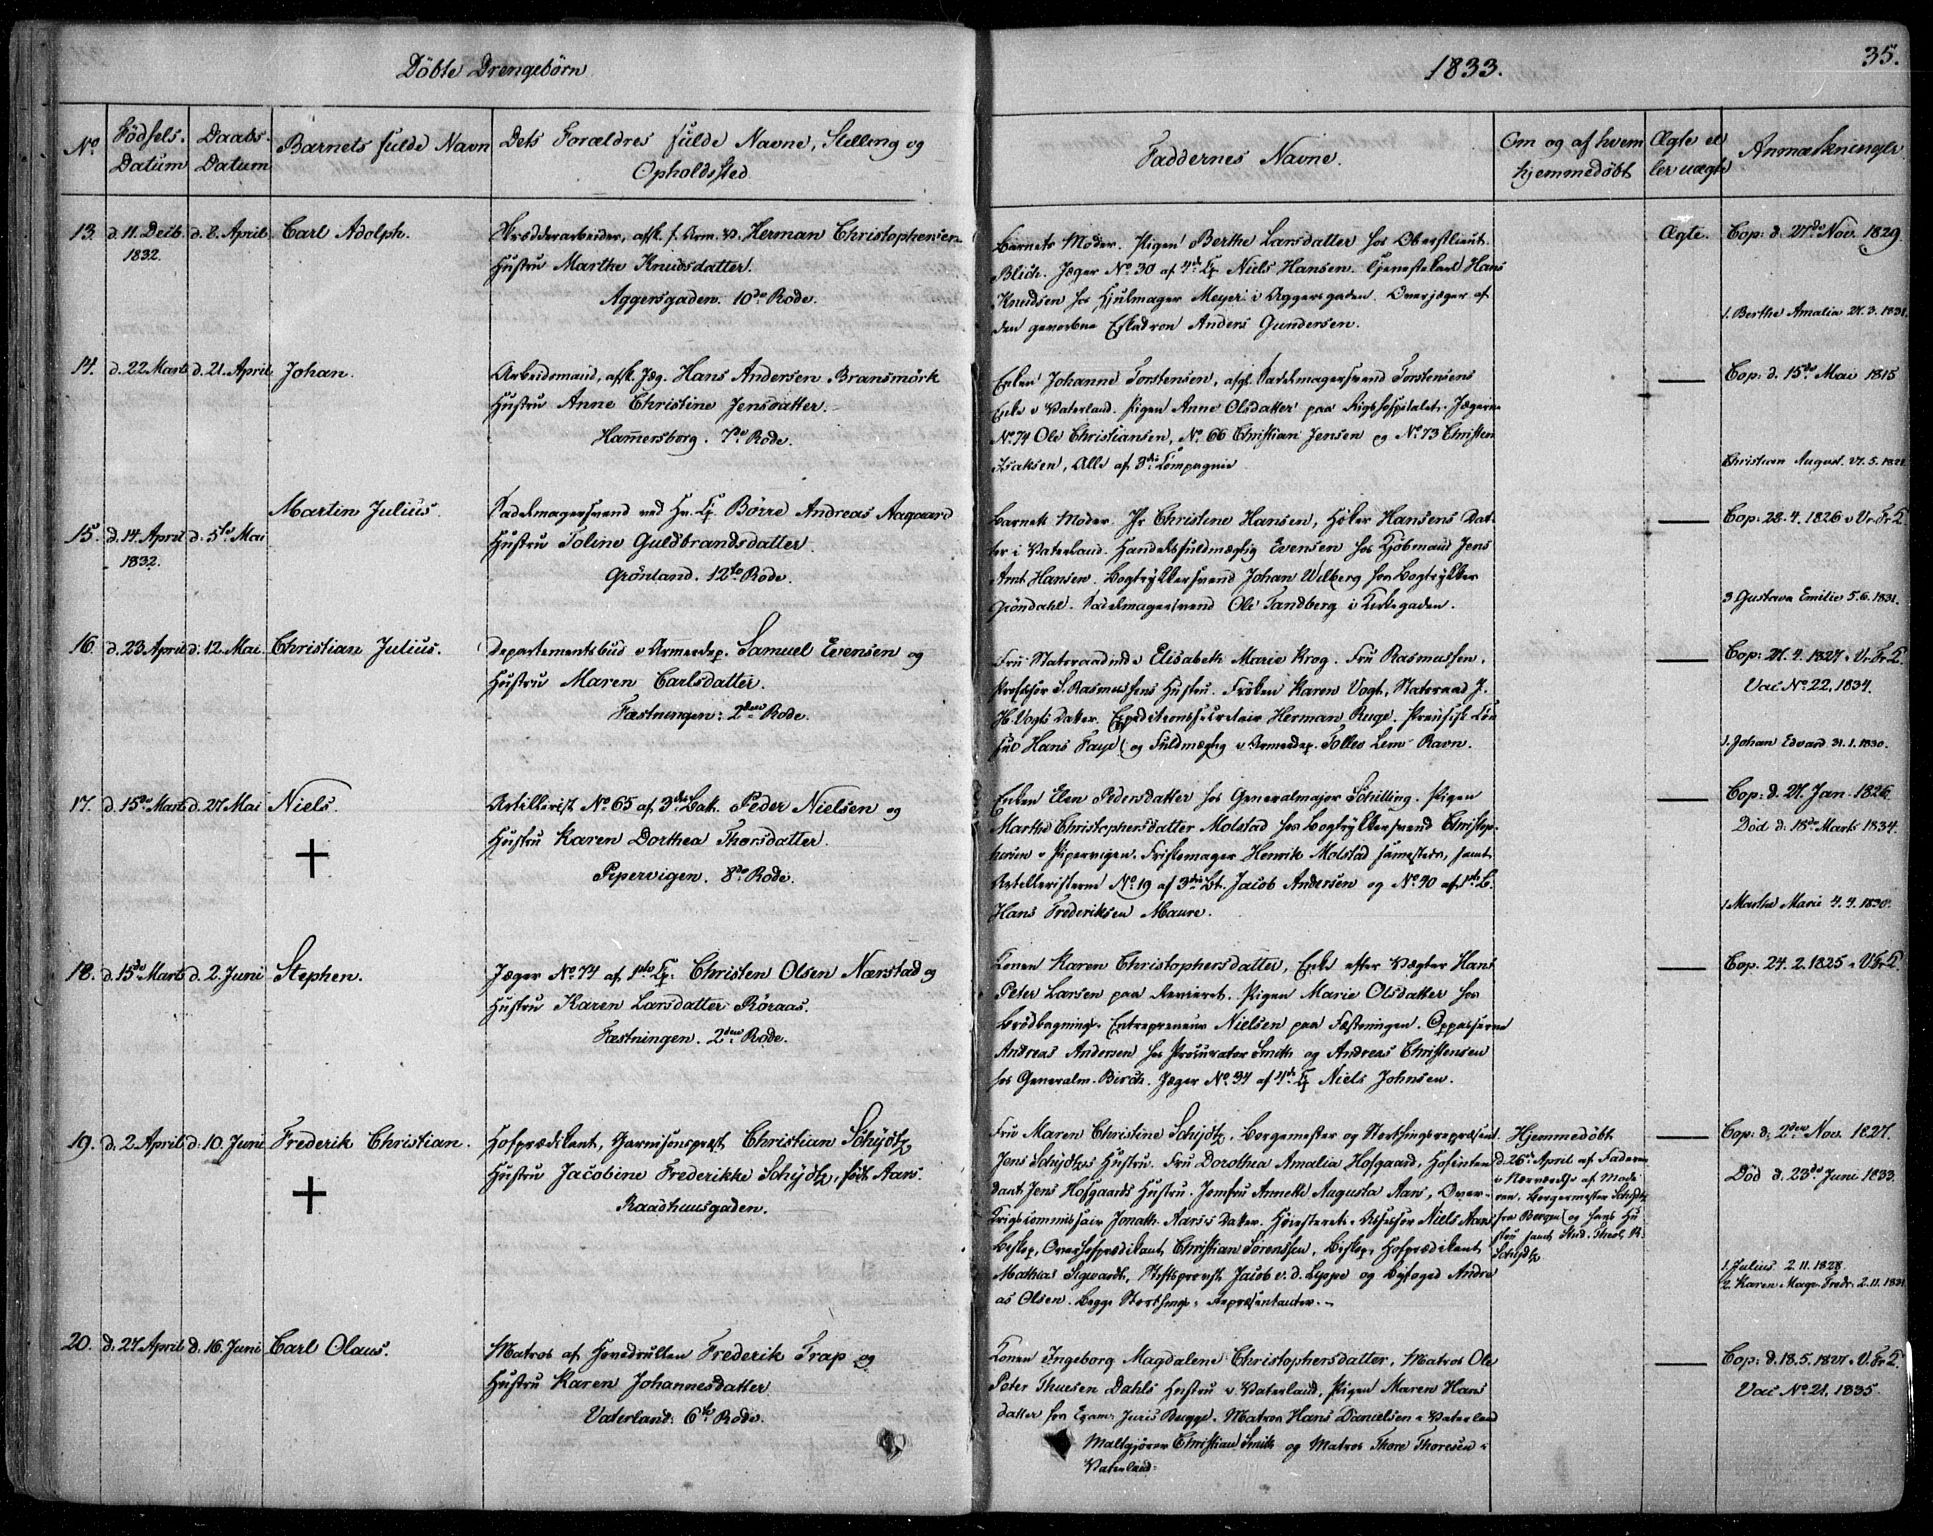 Döbte Drengebörn
1833.
35.
No
Födsels-
Datum
Daabs-
Datum
Barnets fulde Navn
Dets Forældres fulde Navne, Stelling og
Opholdssted
Faddernes Navne.
Om og af hvem
hjemmedöbt
Ægte el
ler uægte
Anmærkninger
13. d. 11. Decb. d. 8. April. Carl Adolph.
1832.
Skrædderarbeider, afsk. f. Herman Christophersen
Hustru Marthe Knudsdatter.
Aggersgaden. 10de Rode.
Barnets Moder. Pigen Berthe Larsdatter hos Oberstlieut.
Blich. Jæger No. 30 af 4de Cp. Niels Hansen. Tjenestekarl Hans
Knudsen hos Hjulmager Meyer i Aggersgaden. Overjæger af
den gevorbne Eskadron Anders Gundersen.
Ægte.
Cop: d. 27de Nov. 1829.
1. Berthe Amalia 21.3.1831.
14. d. 22 Marts d. 21. April Johan.
Arbeidsmand, afsk. Jæg. Hans Andersen Bransmörk
Hustru Anne Christine Jensdatter.
Hamersborg. 7de Rode.
Enken Johanne Torstensen, afgl. Sadelmagersvend Torstensens
Enke v Vaterland. Pigen Anne Olsdatter paa Rigshospitalet. Jægerne
No. 74 Ole Christiansen, No. 66 Christian Jensen og No. 73 Christen
Isaksen, Alle af 3die Compagnie
Cop: d. 15de Mai 1815
Christian August. 27.5.1822
15. d. 14. April d. 5te Mai
1832.
Martin Julius.
Sadelmagersvend ved Hr. Cp. Börre Andreas Aagaard
Hustru Toline Guldbrandsdatter.
Grönland. 12te Rode.
Barnets Moder. Jfr Christine Hansen, Höker Hansens Dat-
ter i Vaterland. Handelsfuldmægtig Evensen hos Kjöbmand Jens
Ant. Hansen. Bogtrykkersvend Johan Wilberg hos Bogtrykker
Gröndahl. Sadelmagersvend Ole Tandberg i Kirkegaden.
Cop: 28.4.1826 v Vr. Fr. K.
3 Gustava Emilie 5.6.1831.
16. d. 23. April d. 12. Mai Christian Julius.
Departementsbud v Armeedep. Samuel Evensen og
Hustru Maren Carlsdatter.
Fæstningen. 2den Rode.
Fru Statsraadinde Elisabeth Marie Krog. Fru Rasmussen,
Professor S. Rasmussens Hustru. Fröken Karen Vogt, Statsraad J.
H. Vogts Datter. Expeditionssecretair Herman Ruge. Preussisk Con
sul Hans Faye og Fuldmægtig v Armeedep. Tollev Lem Ravn.
Cop: 27.4.1827 v Vr. Fr. K.
Vac No. 22, 1834.
1. Johan Edvard 31.1.1830.
17. d. 15de Marts d. 27 Mai Niels.
Artillerist No 65 af 3die Bat. Peder Nielsen og
Hustru Karen Dorthea Thorsdatter.
Pepervigen. 8de Rode.
Enken Elen Pedersdatter hos Generalmajor Schilling. Pigen
Marthe Christophersdatter Molstad hos Bogtrykkersvend Christop-
hersen v Pipervigen. Friskemager Henrik Molstad sammesteds, samt
Artilleristerne No. 19 af 3die Bt. Jacob Andersen og No. 40 af 1ste B.
Hans Frederiksen Maure.
Cop: d. 27. Jan. 1826.
Död d. 18de Marts 1834.
1. Marthe Marie 4.4.1830.
18. d. 15de Marts d. 2. Juni Stephen.
Jæger No. 74 af 1ste Cp. Christen Olsen Nærstad og
Hustru Karen Larsdatter Röraas.
Fæstningen. 2den Rode.
Konen Karen Christophersdatter, Enke efter Vægter Hans
Peter Larsen paa Revieret. Pigen Marie Olsdatter hos
Brödbagnings-Entrepreneur Nielsen paa Fæstningen. Oppasserne
Andreas Andersen hos Procurator Smith og Andreas Christensen
hos Generalm. Birch. Jæger No. 34 af 4de Cp Niels Johnsen.
Cop. 24.2.1825 v V. Fr. K.
19. d. 2. April d. 10. Juni Frederik Christian.
Hofprædikant, Garnisonspræst Christian Schydtz
Hustru Jacobine Frederikke Schydtz, födt Aars.
Raadhuusgaden.
Fru Maren Christine Schydtz, Borgemester og Storthingsrepræsent.
Jens Schydtzes Hustru. Fru Dorothea Amalia Hofgaard, Hofinten
dant Jens Hofgaards Hustru. Jomfru Annette Augusta Aars, Over-
krigscommissair Jonath. Aars's Datter. Höiesterets-Assessor Niels Aars
Biskop, Overhofprædikant Christian Sörenssen, Biskop, Hofprædikant
Mathias Sigwardt, Stiftsprovst Jacob v. d. Lippe og Byfoged Andre
as Olsen. Begge Storthings-Repræsentanter.
Hjemmedöbt
d. 26. April af Faderen
i Nærværelse af Mode
ren. Borgermester Schydtz
fra Bergen og hans Hu
stru samt Stud. Theol.
Schydtz
Cop: d. 2den Nov. 1827.
Död d. 23de Juni 1833.
1. Julius 2.11.1828.
2. Karen Mage. Fredr. 2.11.1831
20. d. 27 April d. 16. Juni Carl Olaus.
Matros af Hovedrullen Frederik Trap og
Hustru Karen Johannesdatter
Vaterland. 6te Rode.
Konen Ingeborg Magdalene Christophersdatter, Matros Ole
Peter Thuesen Dahls Hustru v Vaterland, Pigen Maren Hans
datter hos Exam. Juris Bugge. Matros Hans Danielsen v Vaterland
Maltgjörer Christian Smith og Matros Thore Thoresen v
Vaterland.
Cop: d. 18.5.1827 v V. Fr. K.
Vac No. 21. 1835.